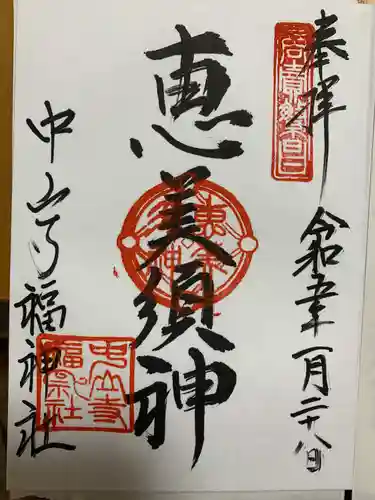 奉拝
令和五年一月二十八日
恵美須神
中山寺福神社
恵美須神
中山寺福神社